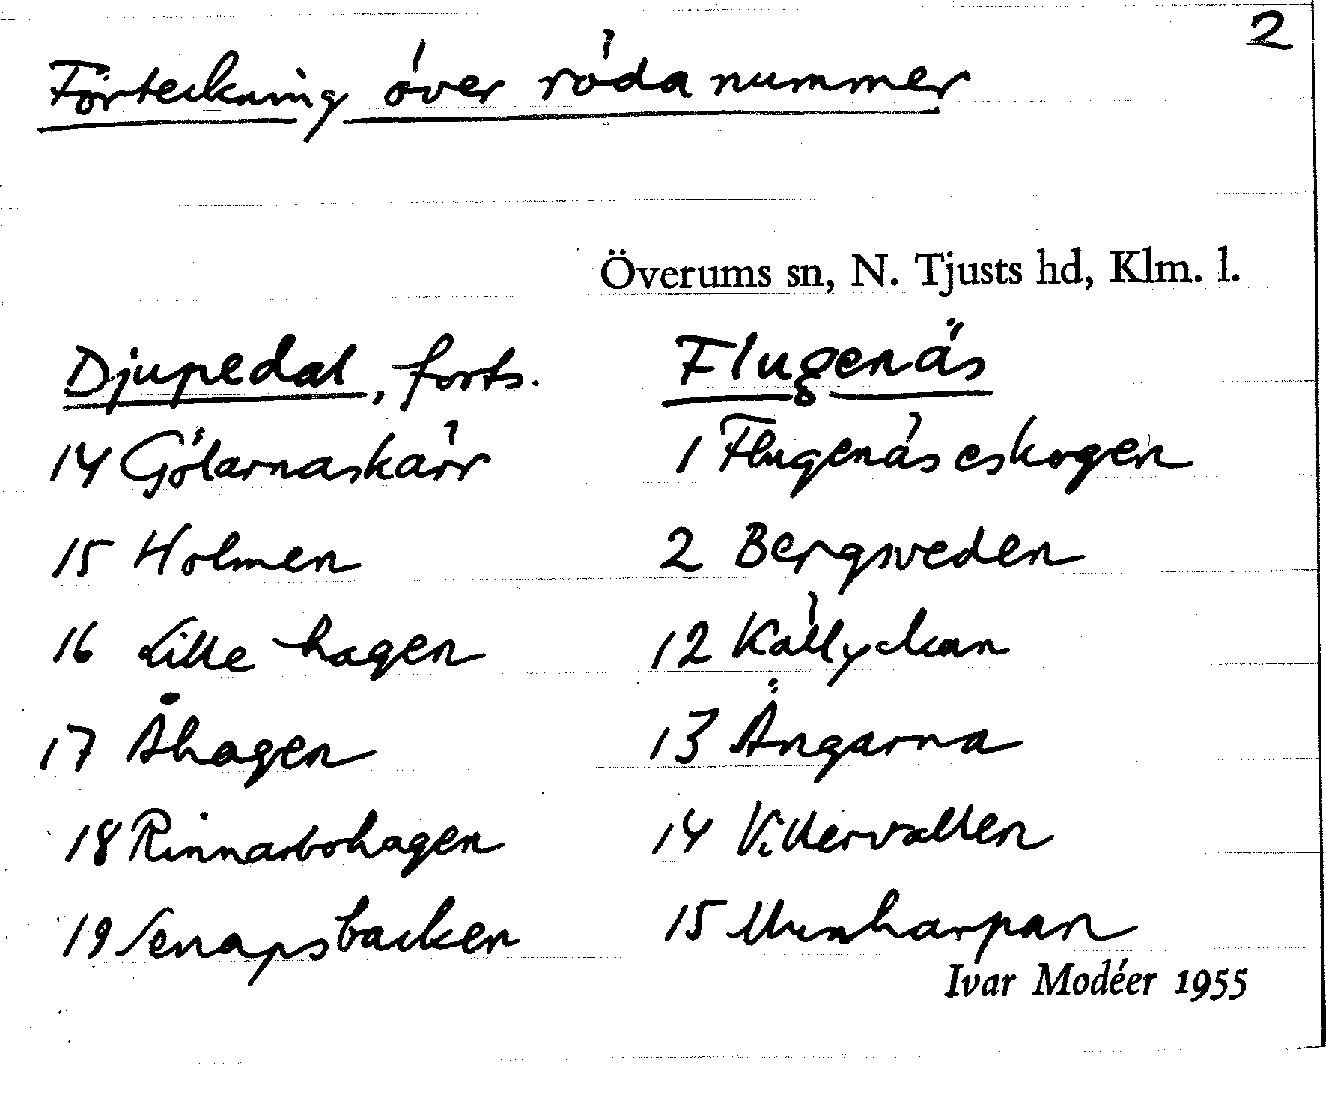 2
Förteckning över röda nummer
Överums sn, N. Tjusts hd, Klm. l.
Djupedal, forts.
14 Gölarnaskärr
15 Holmen
16 Lille hagen
17 Åhagen
18 Rinnarbohagen
19 Senapsbacken
Flugenäs
1 Flugenäs eskogen
2 Bergsveden
12 Källyckan
13 Ängarna
14 Vittervallen
15 Munharpan
Ivar Modéer 1955